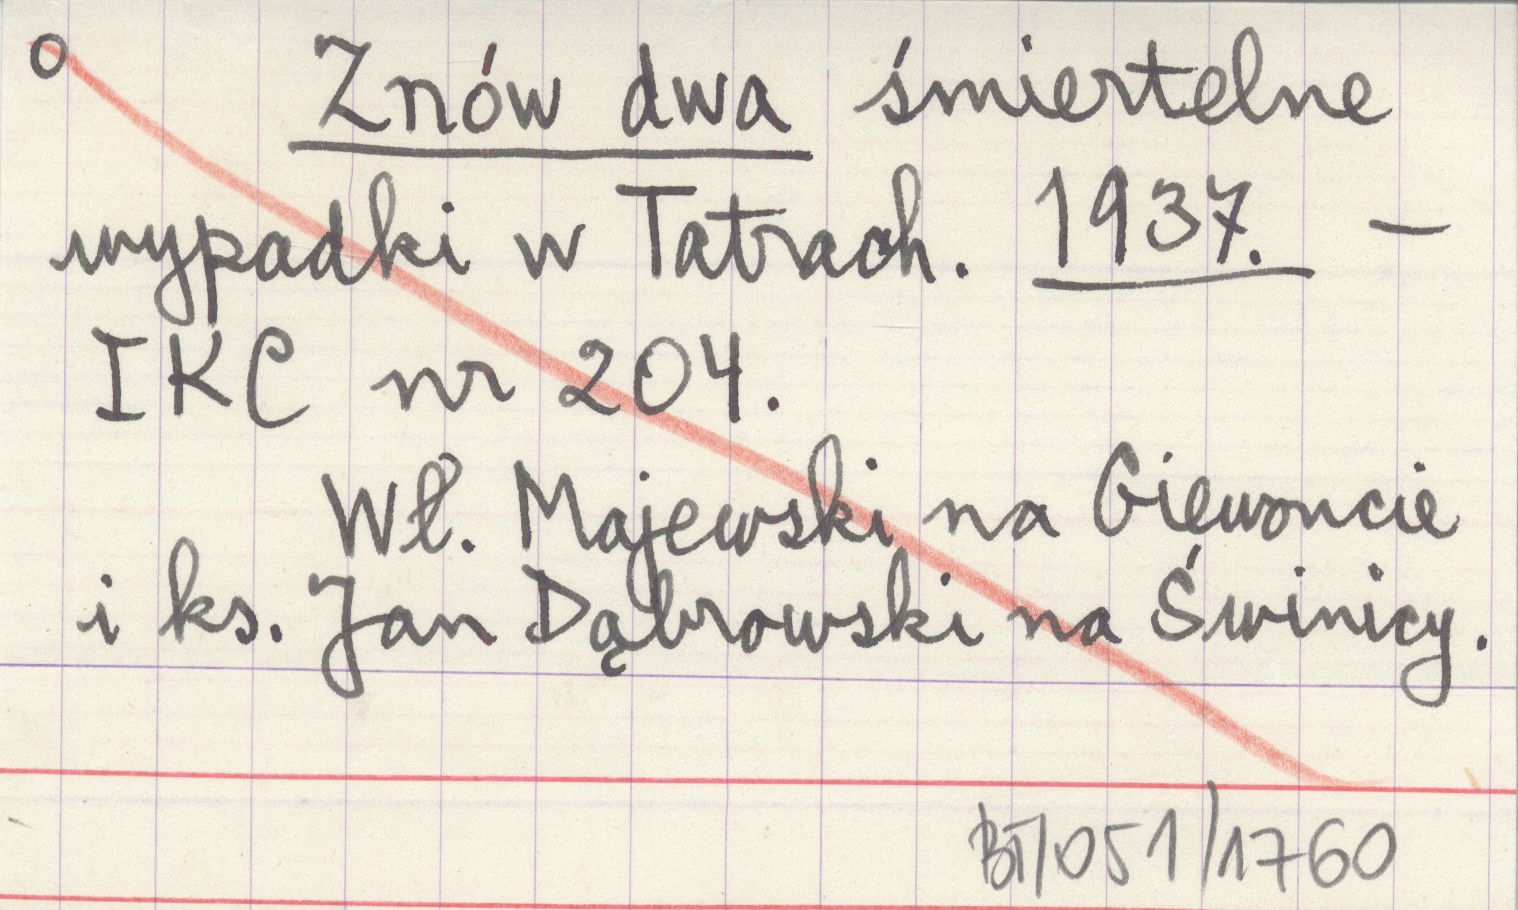 Znów dwa śmiertelne
wypadki w Tatrach. 1937. –
IKC nr 204.
Wł. Majewski na Giewoncie
i ks. Jan Dąbrowski na Świnicy.
BT/051/1760